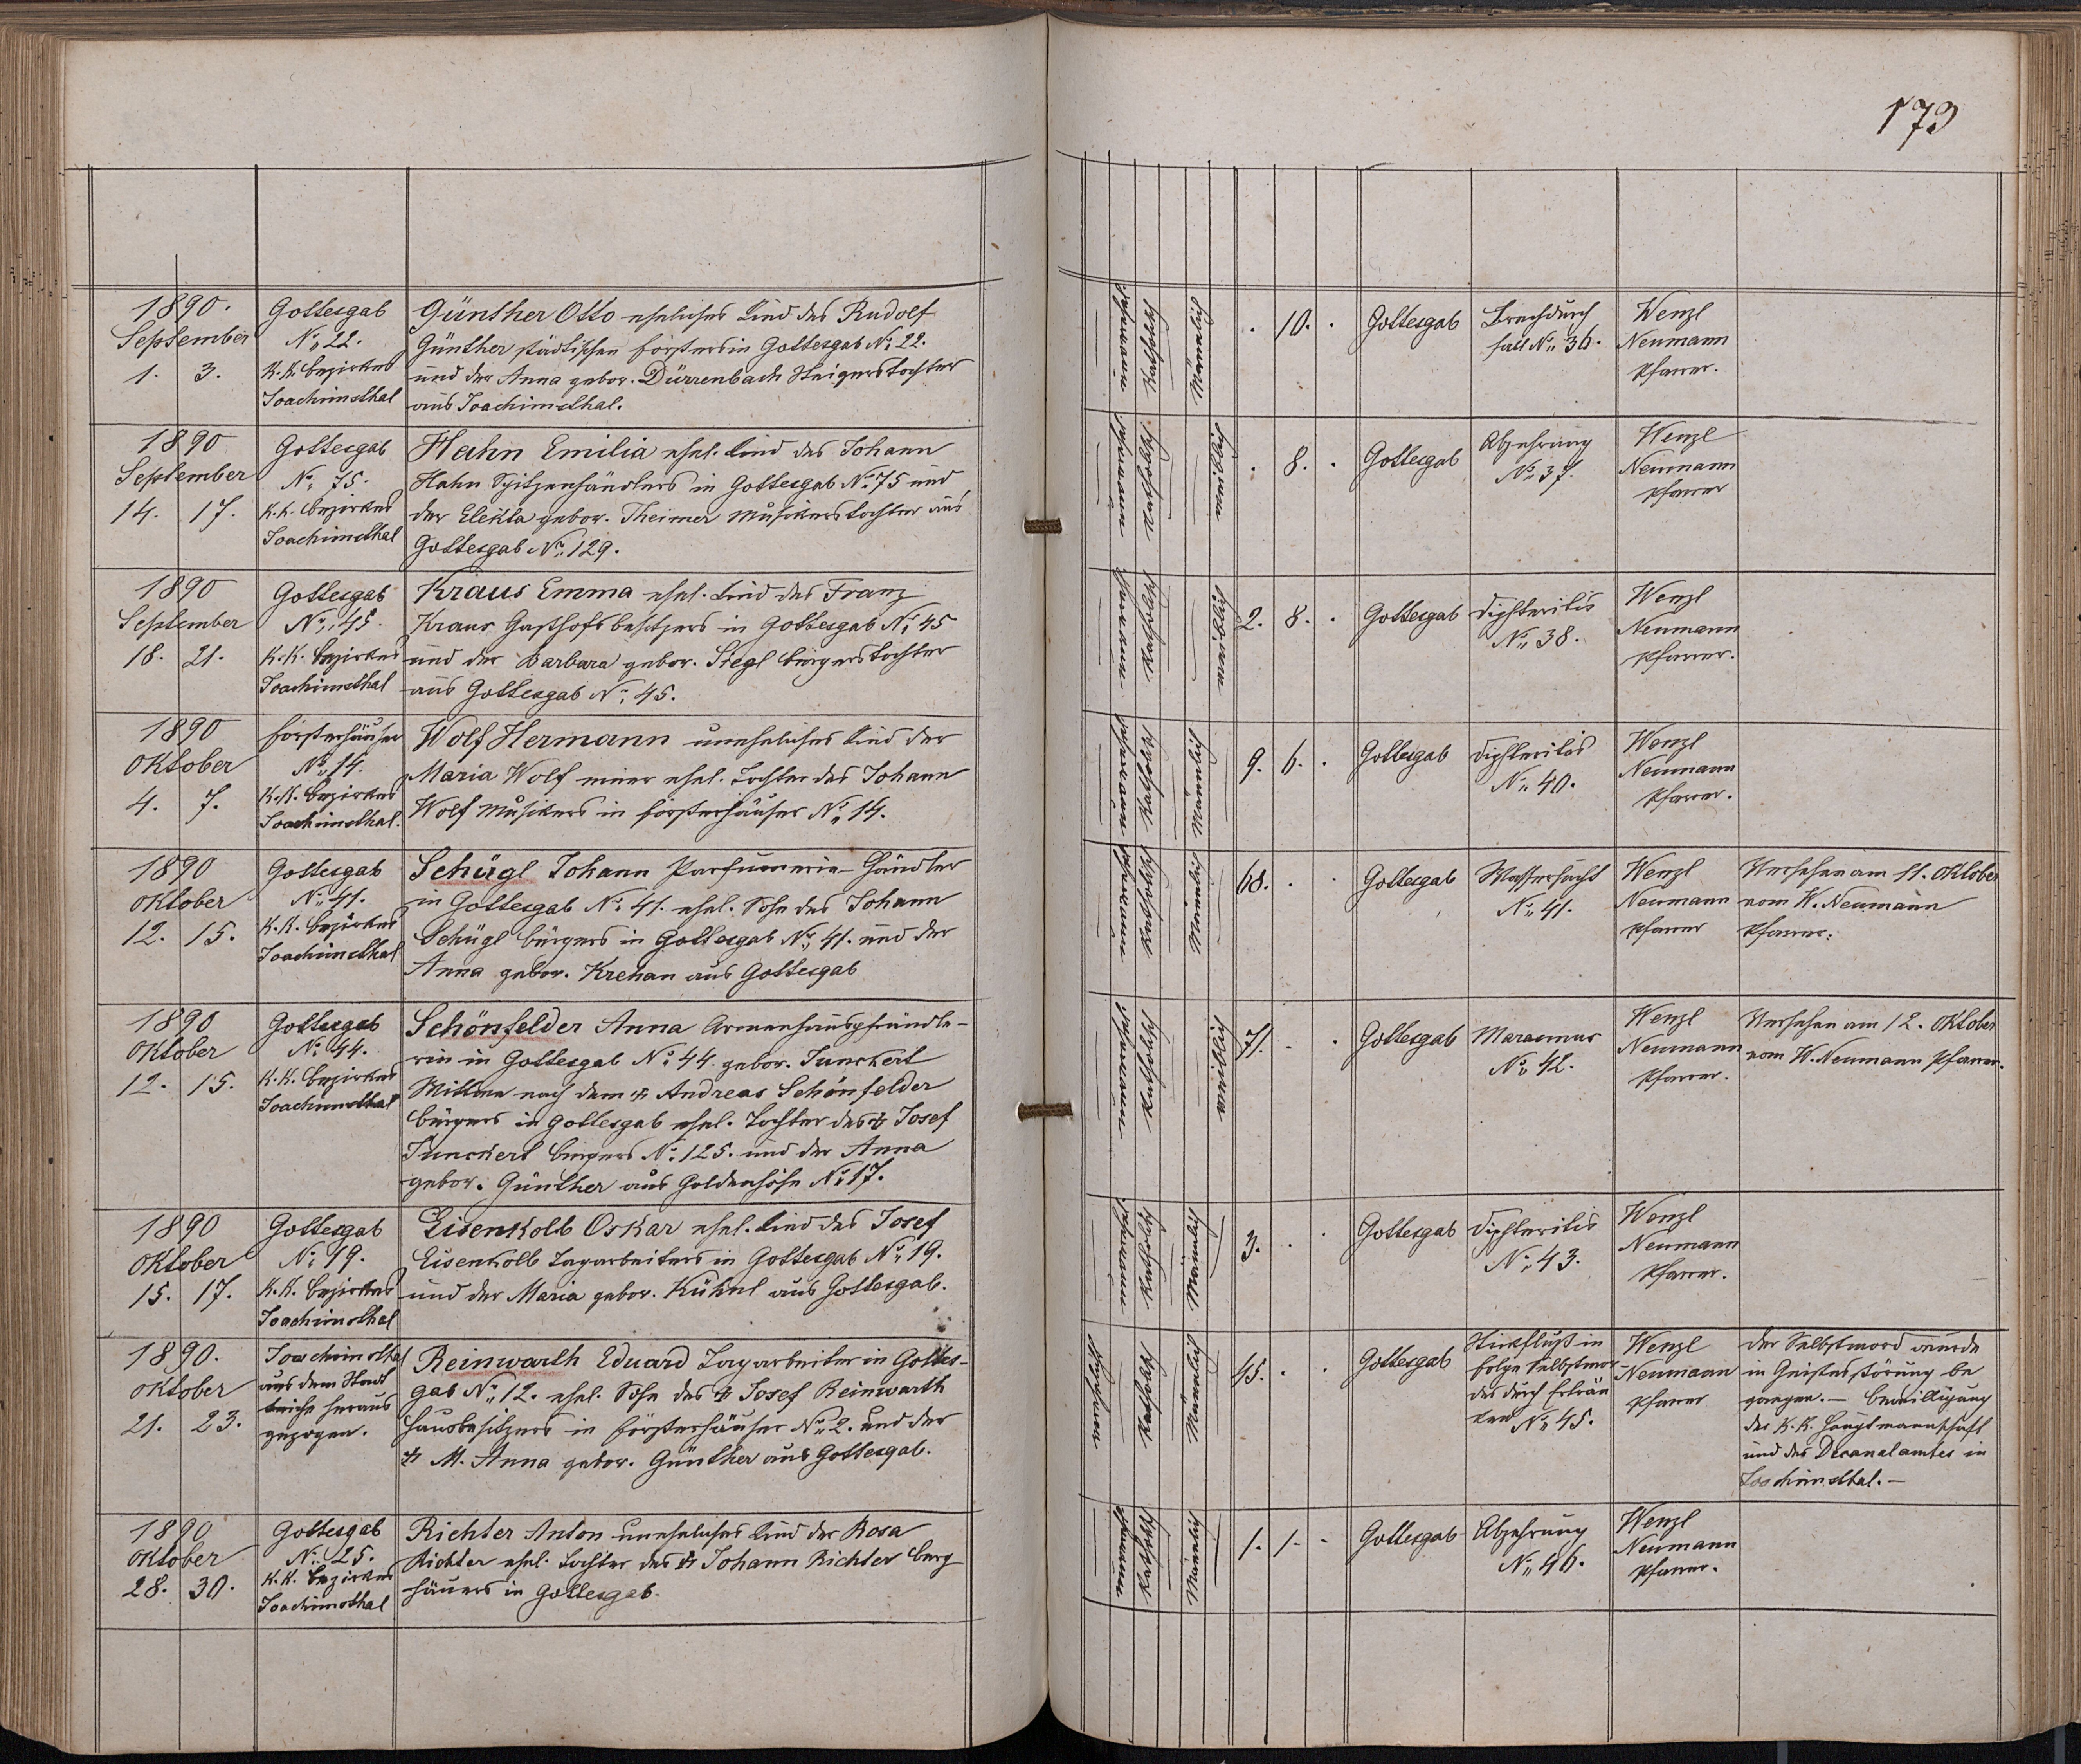 173
1890.
September
1. 3.
Gottesgab
No. 22.
K. K. Bezirkes
Joachimsthal
Günther Otto eheliches Kind des Rudolf
Günther städtischen Försters in Gottesgab No. 22.
und der Anna gebor. Dürrenbach Steigerstochter
aus Joachimsthal.
Katholisch
Männlich
. 10. .
Gottesgab
Brechdurch
fall No. 36.
Wenzl
Neumann
Pfarrer.
1890
September
14. 17.
Gottesgab
No. 75.
K. K. Bezirkes
Joachimsthal
Hahn Emilia ehel. Kind des Johann
Hahn Spitzenhändlers in Gottesgab No. 75 und
der Elekta gebor. Theimer Musikerstochter aus
Gottesgab No. 129.
Katholisch
weiblich
. 8. .
Gottesgab
Abzehrung
No. 37.
Wenzl
Neumann
Pfarrer
1890
September
18. 21.
Gottesgab
No. 45.
K. K. Bezirkes
Joachimsthal
Kraus Emma ehel. Kind des Franz
Kraus Gasthofsbesitzers in Gottesgab No. 45
und der Barbara gebor. Siegl Bürgerstochter
aus Gottesgab No. 45.
Katholisch
weiblich
2. 8. .
Gottesgab
Diphteritis
No. 38.
Wenzl
Neumann
Pfarrer.
1890
Oktober
4. 7.
Försterhäuser
No. 14.
K. K. Bezirkes
Joachimsthal.
Wolf Hermann uneheliches Kind der
Maria Wolf einer ehel. Tochter des Johann
Wolf Musikers in Försterhäuser No. 14.
Katholisch
Männlich
9. 6. .
Gottesgab
Diphteritis
No. 40.
Wenzl
Neumann
Pfarrer.
1890
Oktober
12. 15.
Gottesgab
No. 41.
K. K. Bezirkes
Joachimsthal
Schügl Johann Parfumerie-Händler
in Gottesgab No. 41. ehel. Sohn des Johann
Schügl Bürgers in Gottesgab No. 41. und der
Anna gebor. Krehan aus Gottesgab
Katholisch
Männlich
68. . .
Gottesgab
Wassersucht
No. 41.
Wenzl
Neumann
Pfarrer
Versehen am 11. Oktober
vom W. Neumann
Pfarrer.
1890
Oktober
12. 15.
Gottesgab
No. 44.
K. K. Bezirkes
Joachimsthal
Schönfelder Anna Armenhauspfründle-
rin in Gottesgab No. 44 gebor. Junckert
Wittwe nach dem † Andreas Schönfelder
Bürgers in Gottesgab ehel. Tochter des † Josef
Junckert Bürgers No. 125. und der Anna
gebor. Günther aus Goldenhöhe No. 17.
Katholisch
weiblich
71. . .
Gottesgab
Marasmus
No. 42.
Wenzl
Neumann
Pfarrer.
Versehen am 12. Oktober
vom W. Neumann Pfarrer.
1890
Oktober
15. 17.
Gottesgab
No. 19.
K. K. Bezirkes
Joachimsthal
Eisenkolb Oskar ehel. Kind des Josef
Eisenkolb Tagarbeiters in Gottesgab No. 19.
und der Maria gebor. Kühnl aus Gottesgab.
Katholisch
Männlich
3. . .
Gottesgab
Diphteritis
No. 43.
Wenzl
Neumann
Pfarrer.
1890.
Oktober
21. 23.
Joachimsthal
aus dem Stadt
teiche heraus
gezogen.
Reinwarth Eduard Tagarbeiter in Gottes-
gab No. 12. ehel. Sohn des † Josef Reinwarth
Hausbesitzers in Försterhäuser No. 2. und der
† M. Anna gebor. Günther aus Gottesgab.
Katholisch
Männlich
45. . .
Gottesgab
Stickfluß in
Folge Selbstmor-
des durch Erträn
ken No. 45.
Wenzl
Neumann
Pfarrer
Der Selbstmord wurde
in Geistesstörung be
gangen. – Bewilligung
der K. K. Hauptmannschaft
und des Decanalamtes in
Joachimsthal. –
1890
Oktober
28. 30.
Gottesgab
No. 25.
K. K. Bezirkes
Joachimsthal
Richter Anton uneheliches Kind der Rosa
Richter ehel. Tochter des † Johann Richter Berg
häuers in Gottesgab.
Katholisch
Männlich
1. 1. .
Gottesgab
Abzehrung
No. 46.
Wenzl
Neumann
Pfarrer.